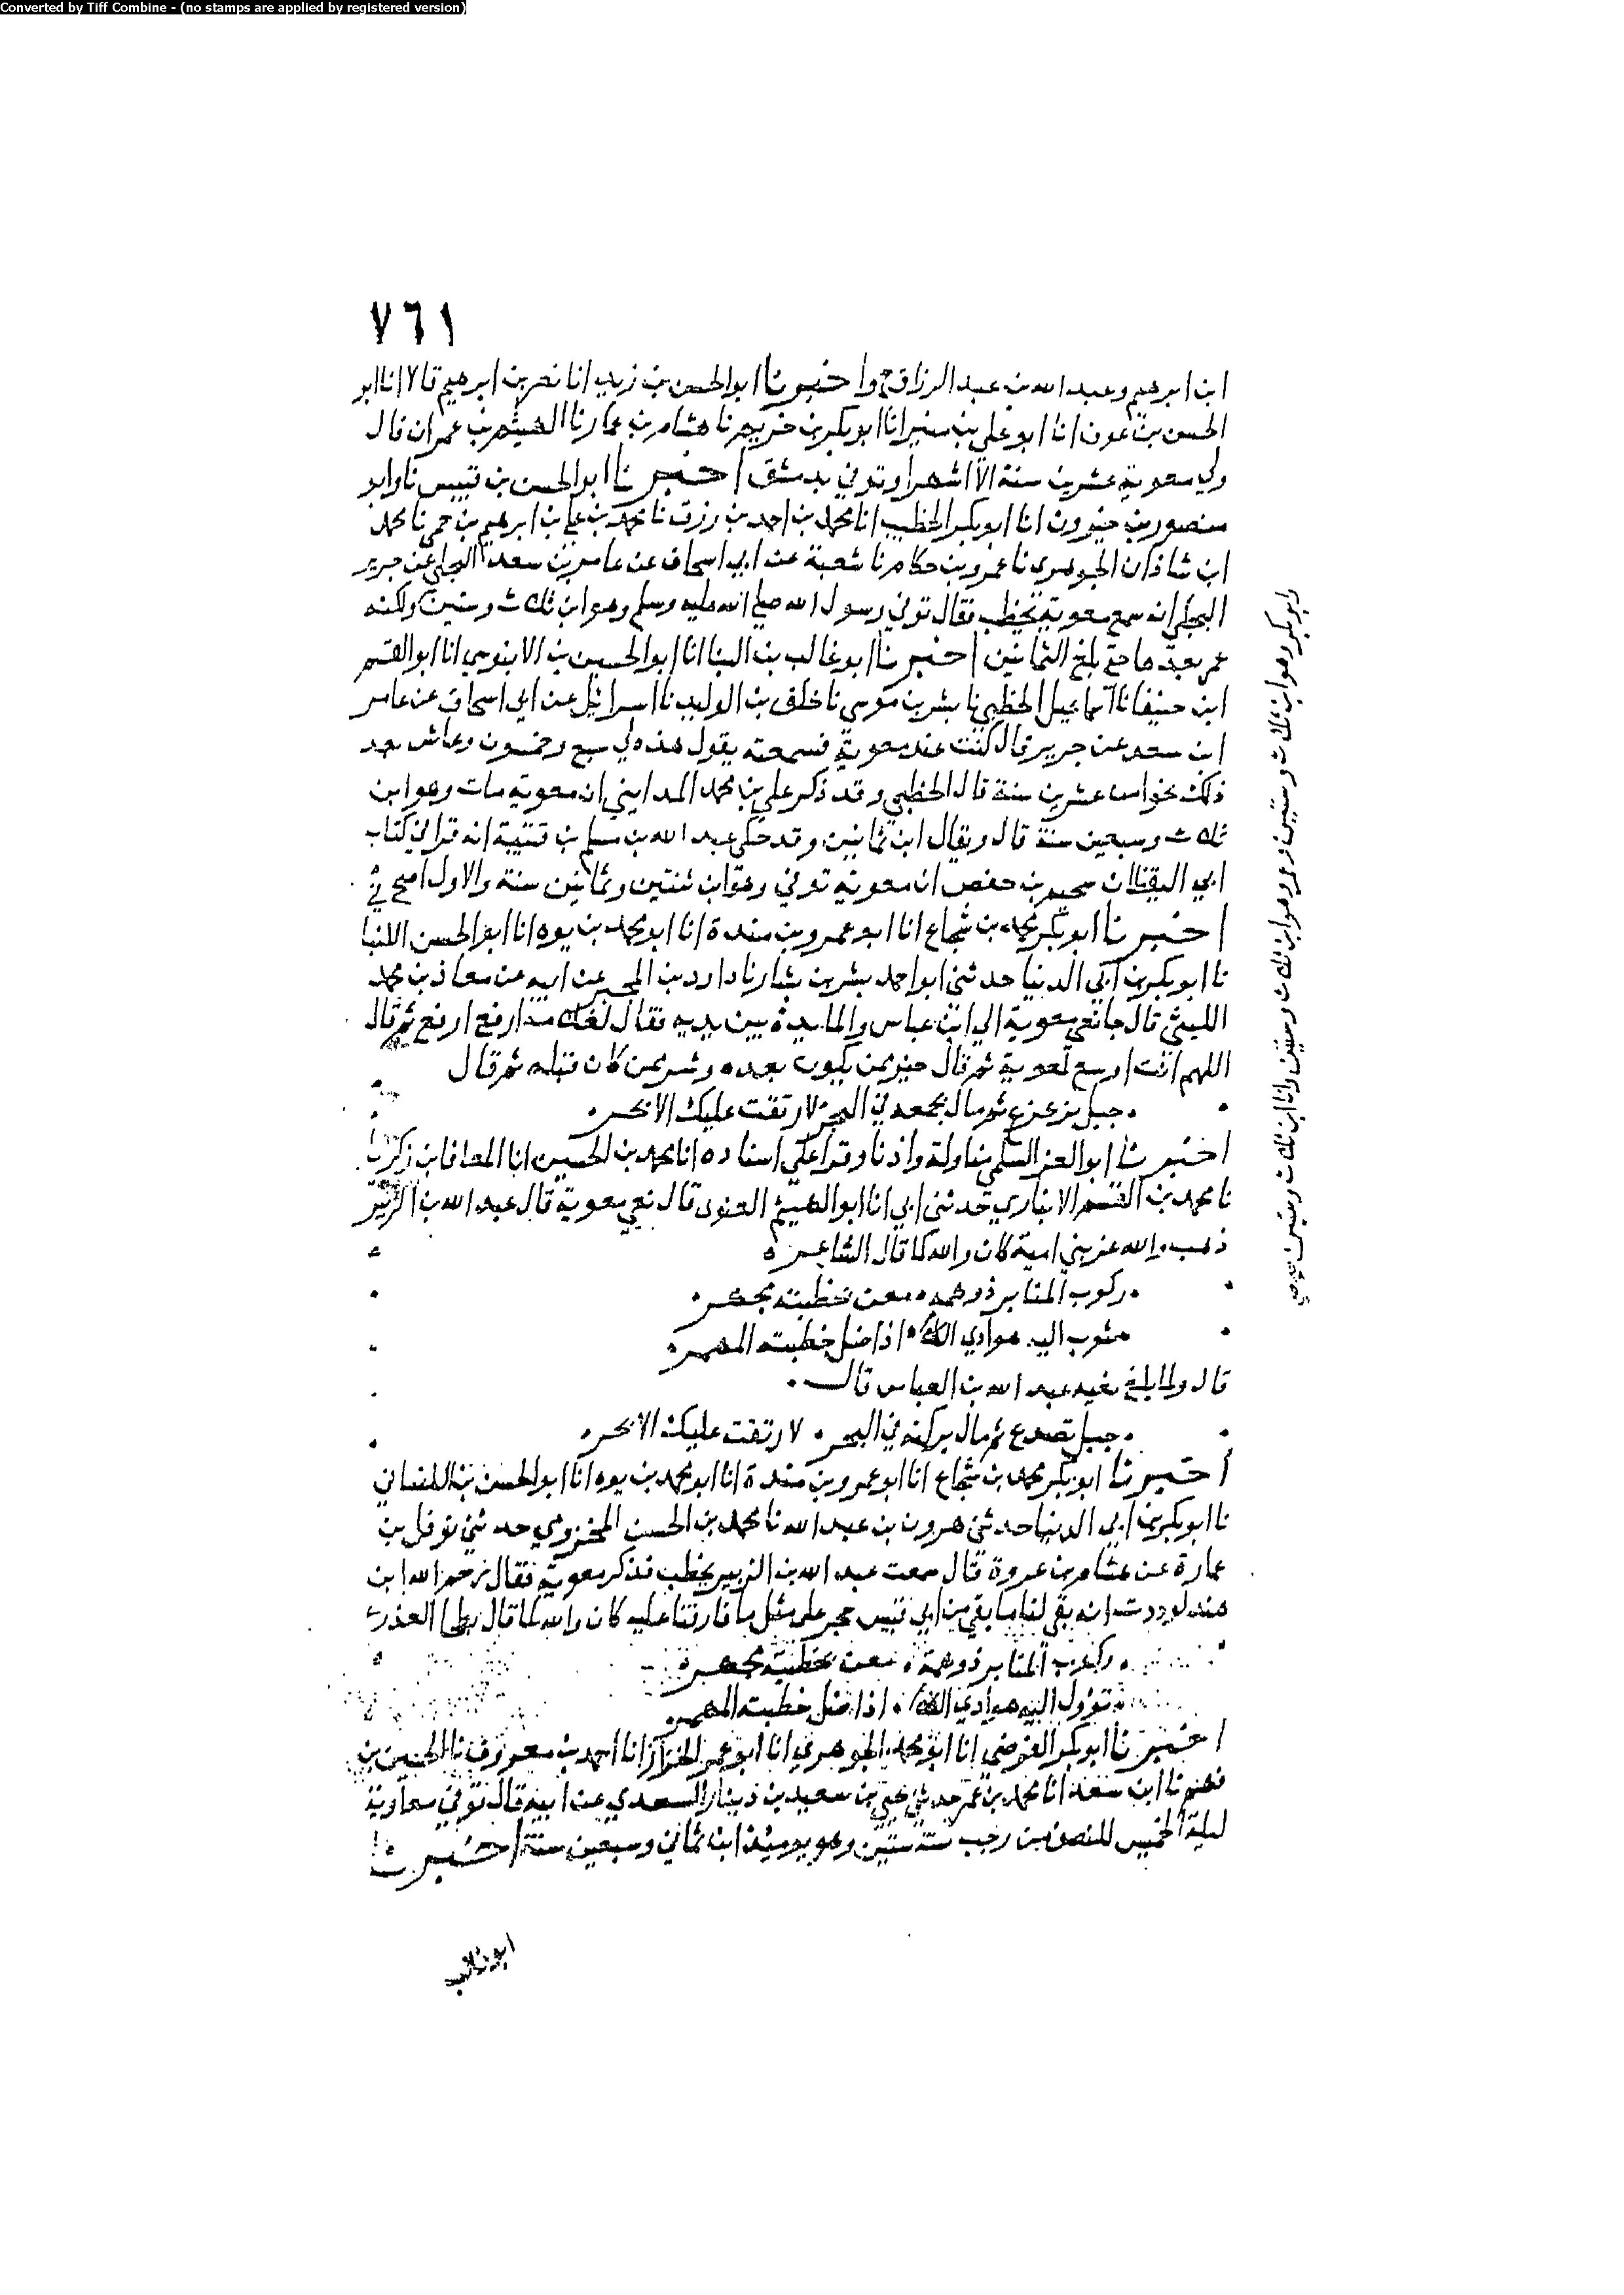 Converted by Tiff Combine - (no stamps are applied by registered version)
٧٦١
ابن ابرهيم وعبد الله بن عبد الرزاق ح واخبرنا ابو الحسن بن زيد انا نصر بن ابرهيم قالا انا ابو
الحسن بن عون انا ابو علي بن منير انا ابو بكر بن خريم نا هشام بن عمار نا الهيثم بن عمران قال
ولي معوية عشرين سنة الا اشهرا وتوفي بدمشق اخبرنا ابو الحسن بن قبيس نا وابو
منصور بن خيرون انا ابو بكر الخطيب انا محمد بن احمد بن رزق نا محمد بن علي بن ابرهيم بن حمى نا محمد
ابن شاذان الجوهري نا عمرو بن حكام نا شعبة عن ابي اسحاق عن عامر بن سعد البجلي عن جرير
البجلي انه سمع معوية يخطب فقال توفي رسول الله صلى الله عليه وسلم وهو ابن ثلاث وستين ولكنه
وابو بكر وهو ابن ثلاث وستين وعمر وهو ابن ثلاث وستين وانا ابن ثلاث وستين
عمر بعدها حتى بلغ الثمانين اخبرنا ابو غالب بن البنا انا ابو الحسين بن الابنوسي انا ابو القسم
ابن حنيفا نا اسماعيل الخطبي نا بشر بن موسى نا خلف بن الوليد نا اسرائيل عن ابي اسحاق عن عامر
ابن سعد عن جرير قال كنت عند معوية فسمعته يقول هذه لي سبع وخمسون وعاش بعد
ذلك نحوا من عشرين سنة قال الخطبي وقد ذكر علي بن محمد المدايني ان معوية مات وهو ابن
ثلاث وسبعين سنة قال ويقال ابن ثمانين وقد حكى عبد الله بن مسلم بن قتيبة انه قرا في كتاب
ابي اليقظان سحيم بن حفص ان معوية توفي وهو ابن ثنتين وثمانين سنة والاول اصح
اخبرنا ابو بكر محمد بن شجاع انا ابو عمرو بن مندة انا ابو محمد بن يوه انا ابو الحسن اللنبا
نا ابو بكر بن ابي الدنيا حدثني ابو احمد بشر بن بشار نا داود بن المحبر عن ابيه عن معاذ بن محمد
الليثي قال جا نعي معوية الى ابن عباس والمايدة بين يديه فقال لغلامه ارفع ارفع ثم قال
اللهم انت اوسع لمعوية ثم قال خير ممن يكون بعده وشر ممن كان قبله ثم قال
جبل تزعزع ثم مال بجمعه في البحر لا رتقت عليك الابحر
اخبرنا ابو العز السلمي مناولة واذنا وقرا علي اسناده انا محمد بن الحسين انا المعافا بن زكريا
نا محمد بن القسم الانباري حدثني ابي انا ابو الهيثم الغنوي قال نعي معوية قال عبد الله بن الزبير
ذهب والله عز بني امية كان والله كما قال الشاعر
ركوب المنابر ذو همة معن بخطبته مجهر
تثوب اليه هوادي الكلام اذا ضل خطبته المهمر
قال ولما بلغ نعيه عبد الله بن العباس قال
جبل تصدع ثم مال بركنه في البحر لا رتقت عليك الابحر
اخبرنا ابو بكر محمد بن شجاع انا ابو عمرو بن مندة انا ابو محمد بن يوه انا ابو الحسن اللنباني
نا ابو بكر بن ابي الدنيا حدثني هرون بن عبد الله نا محمد بن الحسن المخزومي حدثني نوفل بن
عمارة عن هشام بن عروة قال سمعت عبد الله بن الزبير يخطب فذكر معوية فقال رحم الله ابن
هند لوددت انه بقي لنا ما بقي من ابي قبيس حجر على مثل ما فارقنا عليه كان والله كما قال بطحا العذري
ركوب المنابر ذو همة معن بخطبته مجهر
تؤول اليه هوادي الكلام اذا ضل خطبته المهمر
اخبرنا ابو بكر الفرضي انا ابو محمد الجوهري انا ابو عمر الخزاز انا احمد بن معروف نا الحسين بن
فهم نا ابن سعد انا محمد بن عمر حدثني يحيى بن سعيد بن دينار السعدي عن ابيه قال توفي معاوية
ليلة الخميس للنصف من رجب سنة ستين وهو يومئذ ابن ثماني وسبعين سنة اخبرنا
ابو غالب